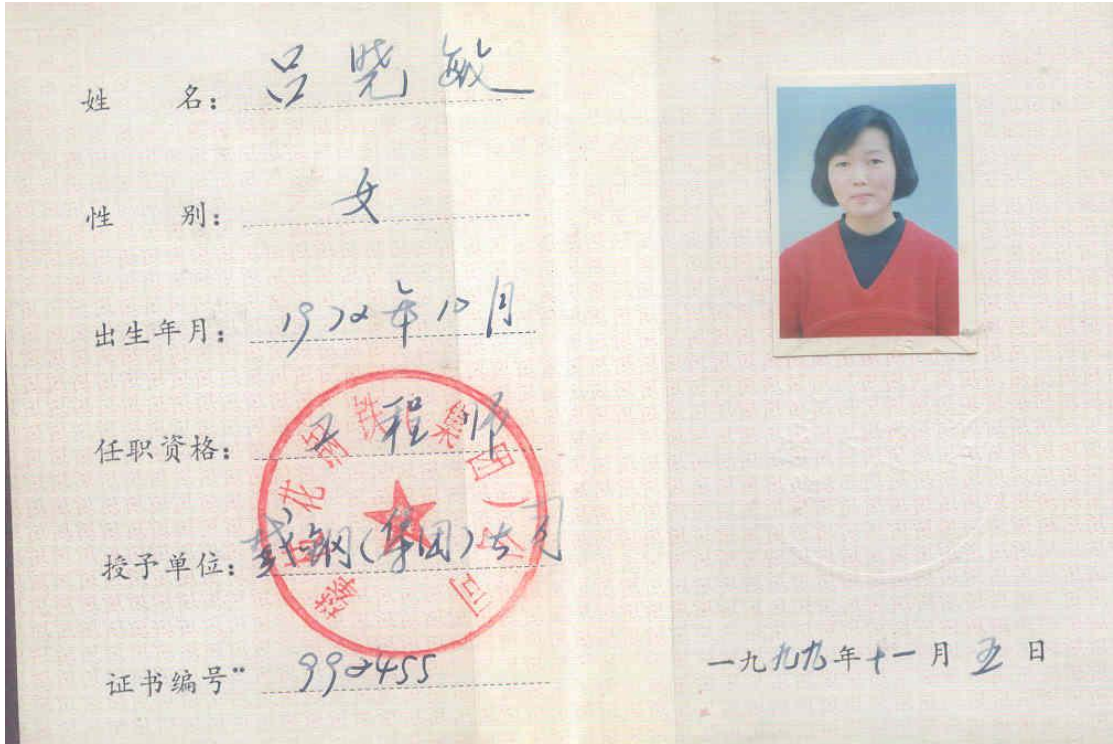 姓 名: 吕晓敏
性 别: 女
出生年月: 1972年10月
任职资格: 工程师
授予单位: 攀钢(集团)公司
证书编号: 992455
攀枝花钢铁(集团)公司
一九九九年十一月五日